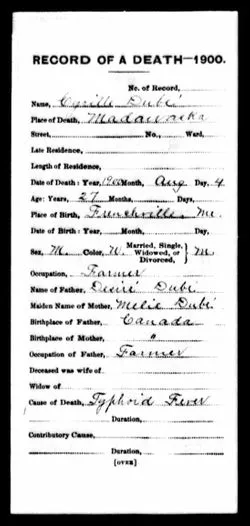 RECORD OF A DEATH—1900.
No. of Record,
Name, Cyrille Dubé
Place of Death, Madawaska
Street, No., Ward,
Late Residence,
Length of Residence,
Date of Death: Year, 1900 Month, Aug Day, 4
Age: Years, 27 Months, Days,
Place of Birth, Frenchville Me.
Date of Birth: Year, Month, Day,
Sex, M. Color, W. Married, Single, Widowed, or Divorced, } M
Occupation, Farmer
Name of Father, Desiré Dubé
Maiden Name of Mother, Melie Dubé
Birthplace of Father, Canada
Birthplace of Mother, "
Occupation of Father, Farmer
Deceased was wife of,
Widow of,
Cause of Death, Typhoid Fever
Duration,
Contributory Cause,
Duration,
[OVER]